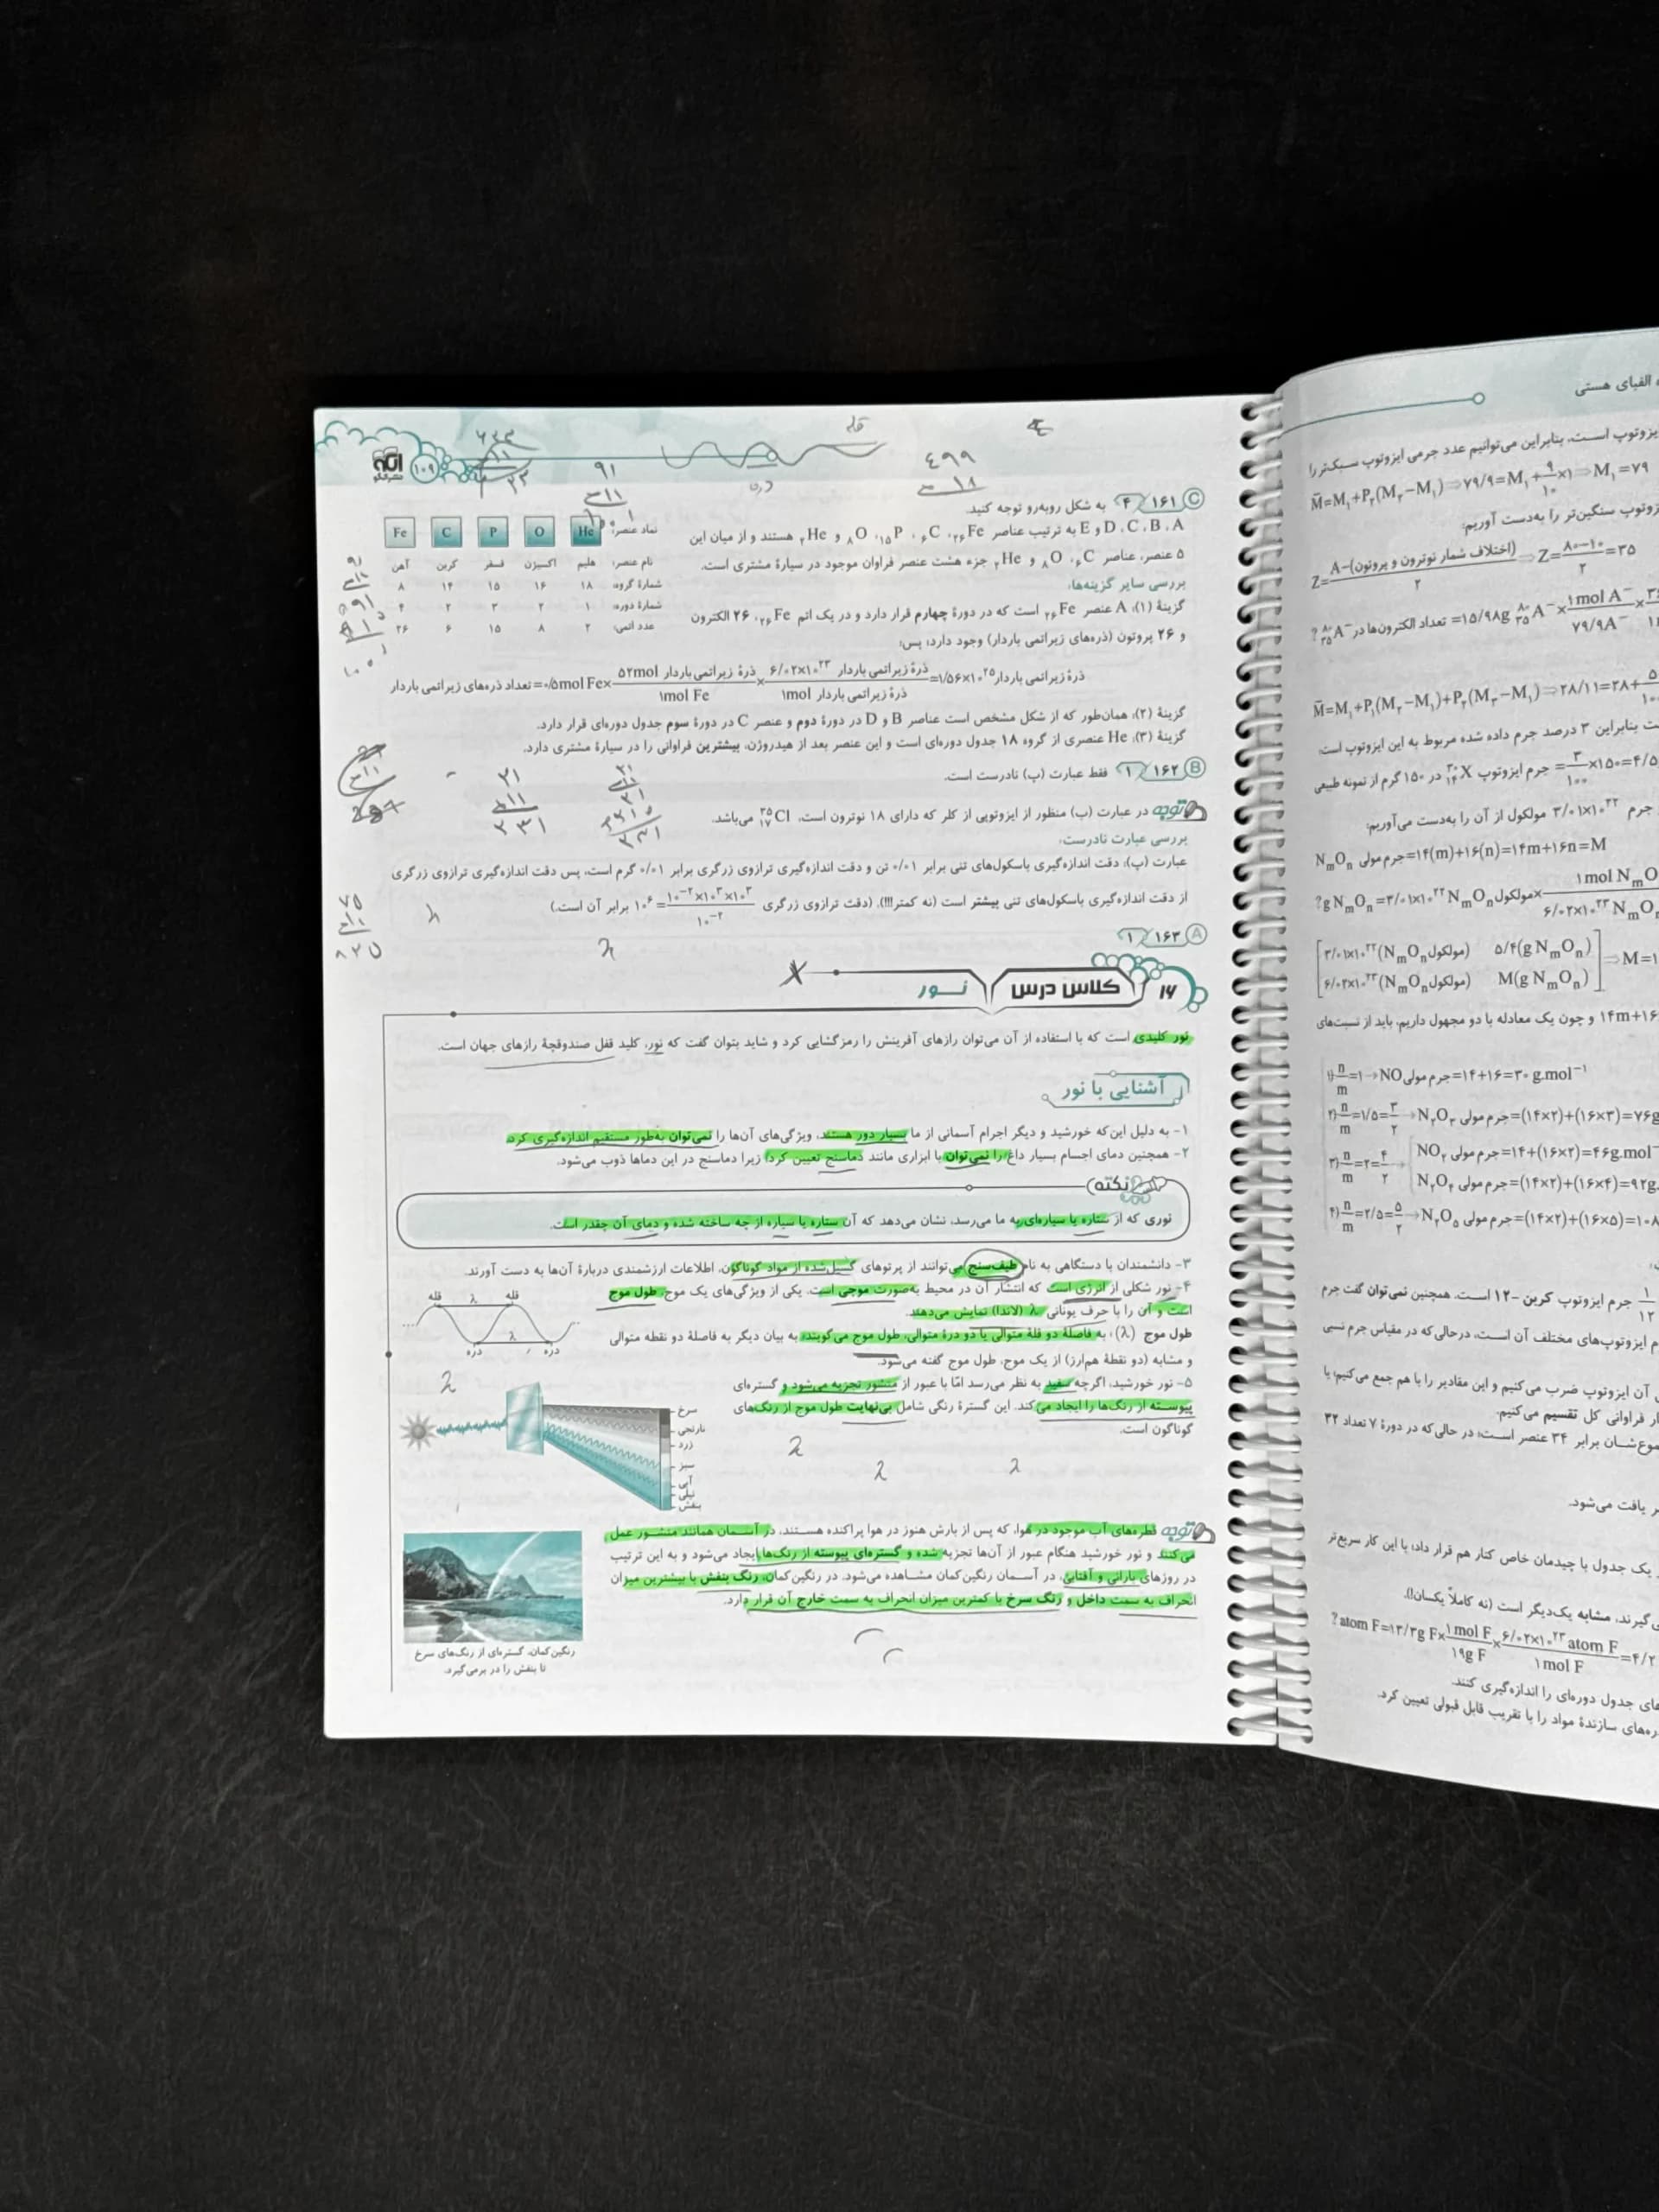 ۱۰۹
C ۱۶۱ ۴ به شکل روبه‌رو توجه کنید.
A، B، C، D و E به ترتیب عناصر ₂₆Fe، ₆C، ₁₅P، ₈O و ₂He هستند و از میان این
۵ عنصر، عناصر ₆C، ₈O و ₂He جزء هشت عنصر فراوان موجود در سیارهٔ مشتری است.
نماد عنصر: He O P C Fe
نام عنصر: هلیم اکسیژن فسفر کربن آهن
شمارهٔ گروه: ۱۸ ۱۶ ۱۵ ۱۴ ۸
شمارهٔ دوره: ۱ ۲ ۳ ۲ ۴
عدد اتمی: ۲ ۸ ۱۵ ۶ ۲۶
بررسی سایر گزینه‌ها:
گزینهٔ (۱): A عنصر ₂₆Fe است که در دورهٔ چهارم قرار دارد و در یک اتم ₂₆Fe، ۲۶ الکترون
و ۲۶ پروتون (ذره‌های زیراتمی باردار) وجود دارد؛ پس:
تعداد ذره‌های زیراتمی باردار = ۰/۵mol Fe × ۵۲mol ذرهٔ زیراتمی باردار / ۱mol Fe × ۶/۰۲×۱۰^۲۳ ذرهٔ زیراتمی باردار / ۱mol ذرهٔ زیراتمی باردار = ۱/۵۶×۱۰^۲۵ ذرهٔ زیراتمی باردار
گزینهٔ (۲): همان‌طور که از شکل مشخص است عناصر B و D در دورهٔ دوم و عنصر C در دورهٔ سوم جدول دوره‌ای قرار دارد.
گزینهٔ (۳): He عنصری از گروه ۱۸ جدول دوره‌ای است و این عنصر بعد از هیدروژن، بیشترین فراوانی را در سیارهٔ مشتری دارد.
B ۱۶۲ ۱ فقط عبارت (پ) نادرست است.
توجه در عبارت (ب) منظور از ایزوتوپی از کلر که دارای ۱۸ نوترون است، ³⁵₁₇Cl می‌باشد.
بررسی عبارت نادرست:
عبارت (پ): دقت اندازه‌گیری باسکول‌های تنی برابر ۰/۰۱ تن و دقت اندازه‌گیری ترازوی زرگری برابر ۰/۰۱ گرم است، پس دقت اندازه‌گیری ترازوی زرگری
از دقت اندازه‌گیری باسکول‌های تنی بیشتر است (نه کمتر!!!). (دقت ترازوی زرگری ۱۰^-۲×۱۰^۳×۱۰^۳ / ۱۰^-۲ = ۱۰^۶ برابر آن است.)
A ۱۶۳ ۱
۱۶ کلاس درس نور
نور کلیدی است که با استفاده از آن می‌توان رازهای آفرینش را رمزگشایی کرد و شاید بتوان گفت که نور، کلید قفل صندوقچهٔ رازهای جهان است.
آشنایی با نور
۱- به دلیل این‌که خورشید و دیگر اجرام آسمانی از ما بسیار دور هستند، ویژگی‌های آن‌ها را نمی‌توان به‌طور مستقیم اندازه‌گیری کرد.
۲- همچنین دمای اجسام بسیار داغ را نمی‌توان با ابزاری مانند دماسنج تعیین کرد؛ زیرا دماسنج در این دماها ذوب می‌شود.
نکته
نوری که از ستاره یا سیاره‌ای به ما می‌رسد، نشان می‌دهد که آن ستاره یا سیاره از چه ساخته شده و دمای آن چقدر است.
۳- دانشمندان با دستگاهی به نام طیف‌سنج می‌توانند از پرتوهای گسیل‌شده از مواد گوناگون، اطلاعات ارزشمندی دربارهٔ آن‌ها به دست آورند.
۴- نور شکلی از انرژی است که انتشار آن در محیط به‌صورت موجی است. یکی از ویژگی‌های یک موج، طول موج
است و آن را با حرف یونانی λ (لاندا) نمایش می‌دهند.
طول موج (λ): به فاصلهٔ دو قلهٔ متوالی یا دو درهٔ متوالی، طول موج می‌گویند؛ به بیان دیگر به فاصلهٔ دو نقطه متوالی
و مشابه (دو نقطهٔ هم‌ارز) از یک موج، طول موج گفته می‌شود.
قله λ قله
λ
دره دره
۵- نور خورشید، اگرچه سفید به نظر می‌رسد امّا با عبور از منشور تجزیه می‌شود و گستره‌ای
پیوسته از رنگ‌ها را ایجاد می‌کند. این گسترهٔ رنگی شامل بی‌نهایت طول موج از رنگ‌های
گوناگون است.
سرخ
نارنجی
زرد
سبز
آبی
نیلی
بنفش
توجه قطره‌های آب موجود در هوا، که پس از بارش هنوز در هوا پراکنده هستند، در آسمان همانند منشور عمل
می‌کنند و نور خورشید هنگام عبور از آن‌ها تجزیه شده و گستره‌ای پیوسته از رنگ‌ها ایجاد می‌شود و به این ترتیب
در روزهای بارانی و آفتابی، در آسمان رنگین‌کمان مشاهده می‌شود. در رنگین‌کمان، رنگ بنفش با بیشترین میزان
انحراف به سمت داخل و رنگ سرخ با کمترین میزان انحراف به سمت خارج آن قرار دارد.
رنگین‌کمان، گستره‌ای از رنگ‌های سرخ
تا بنفش را در برمی‌گیرد.
الفبای هستی
ایزوتوپ است، بنابراین می‌توانیم عدد جرمی ایزوتوپ سبک‌تر را
M̄=M₁+P₂(M₂−M₁) ⇒ ۷۹/۹=M₁+۹/۱۰×۱ ⇒ M₁=۷۹
ایزوتوپ سنگین‌تر را به‌دست آوریم:
Z=A−(اختلاف شمار نوترون و پروتون)/۲ ⇒ Z=۸۰−۱۰/۲=۳۵
جرم ۳/۰۱×۱۰^۲۲ مولکول از آن را به‌دست می‌آوریم:
جرم مولی NₘOₙ=۱۴(m)+۱۶(n)=۱۴m+۱۶n=M
و چون یک معادله با دو مجهول داریم، باید از نسبت‌های
۱) n/m=۱→NO جرم مولی=۱۴+۱۶=۳۰ g.mol⁻¹
۲) n/m=۱/۵=۳/۲→N₂O₃ جرم مولی=(۱۴×۲)+(۱۶×۳)=۷۶g
۳) n/m=۲=۴/۲→ NO₂ جرم مولی=۱۴+(۱۶×۲)=۴۶g.mol⁻
N₂O₄ جرم مولی=(۱۴×۲)+(۱۶×۴)=۹۲g.
۴) n/m=۲/۵=۵/۲→N₂O₅ جرم مولی=(۱۴×۲)+(۱۶×۵)=۱۰۸
۱/۱۲ جرم ایزوتوپ کربن -۱۲ است. همچنین نمی‌توان گفت جرم
ایزوتوپ‌های مختلف آن است، درحالی‌که در مقیاس جرم نسبی
آن ایزوتوپ ضرب می‌کنیم و این مقادیر را با هم جمع می‌کنیم؛ با
فراوانی کل تقسیم می‌کنیم.
برابر ۳۴ عنصر است؛ در حالی‌که در دورهٔ ۷ تعداد ۳۲
یافت می‌شود.
یک جدول با چیدمان خاص کنار هم قرار داد؛ با این کار سریع‌تر
می‌گیرند، مشابه یک‌دیگر است (نه کاملاً یکسان!).
جدول دوره‌ای را اندازه‌گیری کنند.
ذره‌های سازندهٔ مواد را با تقریب قابل قبولی تعیین کرد.